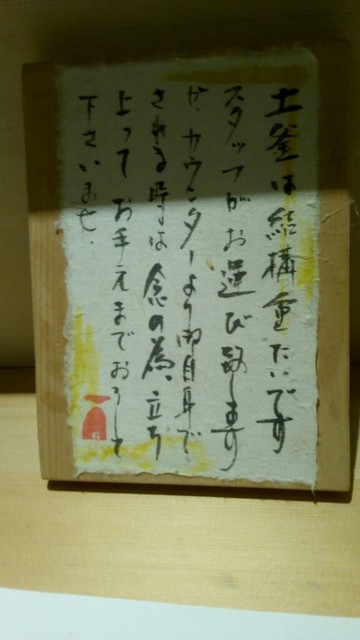 土釜は結構重たいです
スタッフがお運び致します
が、カウンターより御自身で
される時は念の為、立ち
上って お手元までおろして
下さいませ、